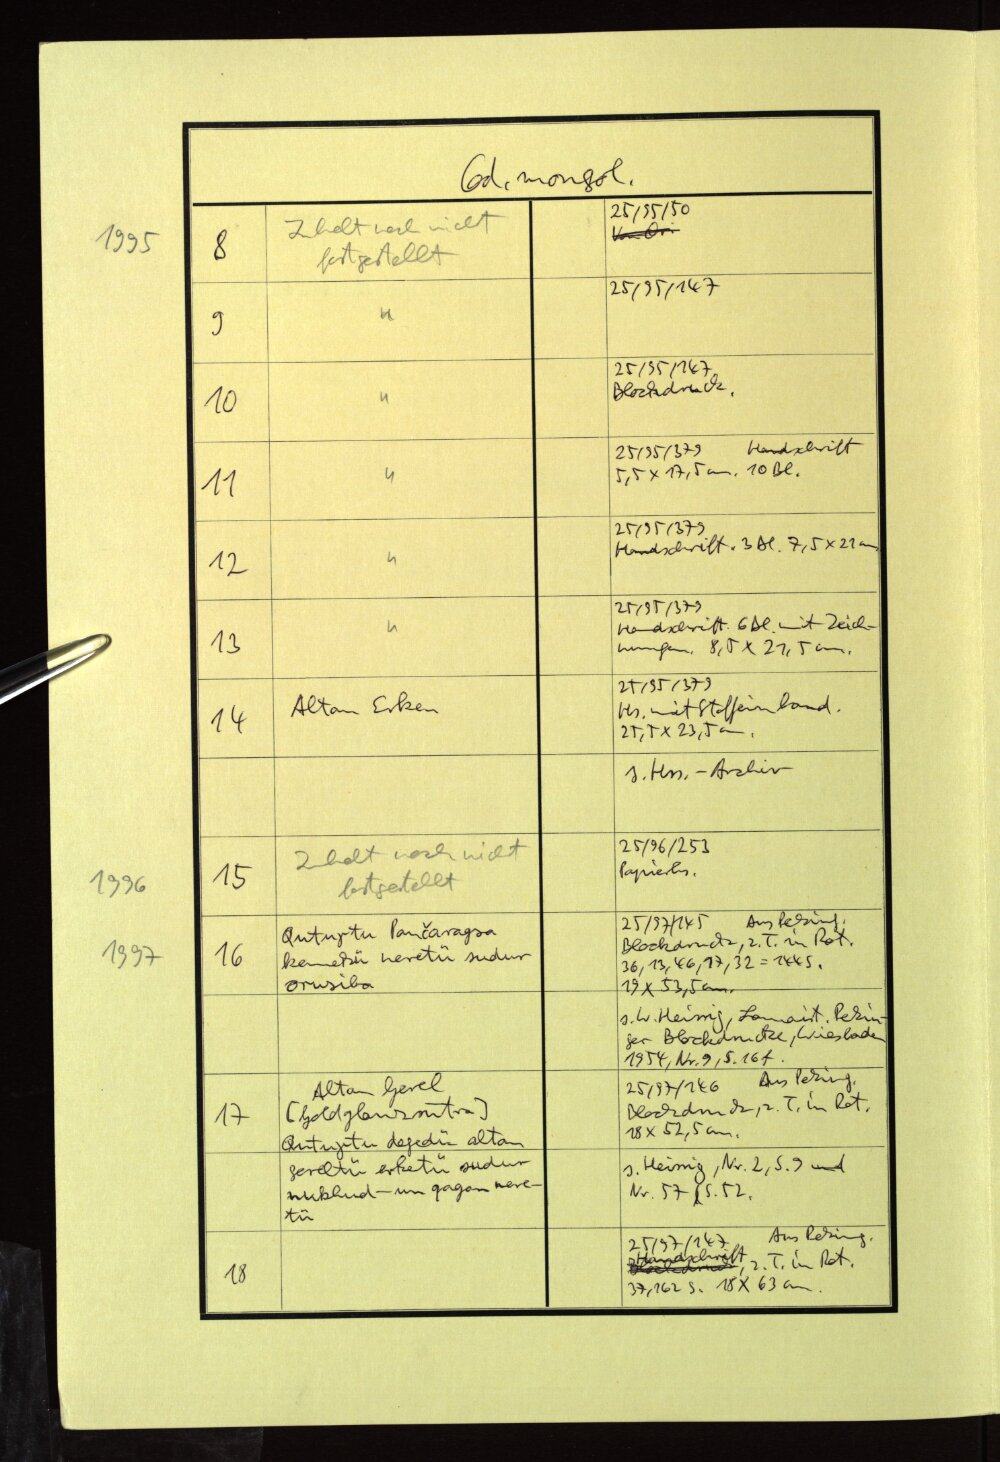 Cod. mongol.
1995
8
Inhalt noch nicht
festgestellt
25/95/50
9
"
25/95/147
10
"
25/95/147
Blockdruck.
11
"
25/95/379 Handschrift
5,5 x 17,5 cm. 10 Bl.
12
"
25/95/379
Handschrift. 3 Bl. 7,5 x 21 cm
13
"
25/95/379
Handschrift. 6 Bl. mit Zeich-
nungen. 8,5 x 21,5 cm.
14
Altan Erken
25/95/379
Hs. mit Stoffeinband.
25,5 x 23,5 cm.
s. Hss.-Archiv
1996
15
Inhalt noch nicht
festgestellt
25/96/253
Papierhs.
1997
16
Qutuγtu Pančaragsa
kemekü neretü sudur
orusiba
25/97/145 Aus Peking.
Blockdruck, z.T. in Rot.
36, 13, 46, 17, 32 = 144 S.
19 x 53,5 cm.
s. W. Heissig, Lamaist. Pekin-
ger Blockdrucke, Wiesbaden
1954, Nr. 9, S. 16 f.
17
Altan Gerel
[Goldglanzsūtra]
Qutuγtu degedü altan
gereltü erketü sudur
nukhud-un qagan nere-
tü
25/97/146 Aus Peking.
Blockdruck, z.T. in Rot.
18 x 52,5 cm.
s. Heissig, Nr. 2, S. 9 und
Nr. 57, S. 52.
18
25/97/147 Aus Peking.
Handschrift
Blockdruck, z.T. in Rot.
37, 162 S. 18 x 63 cm.